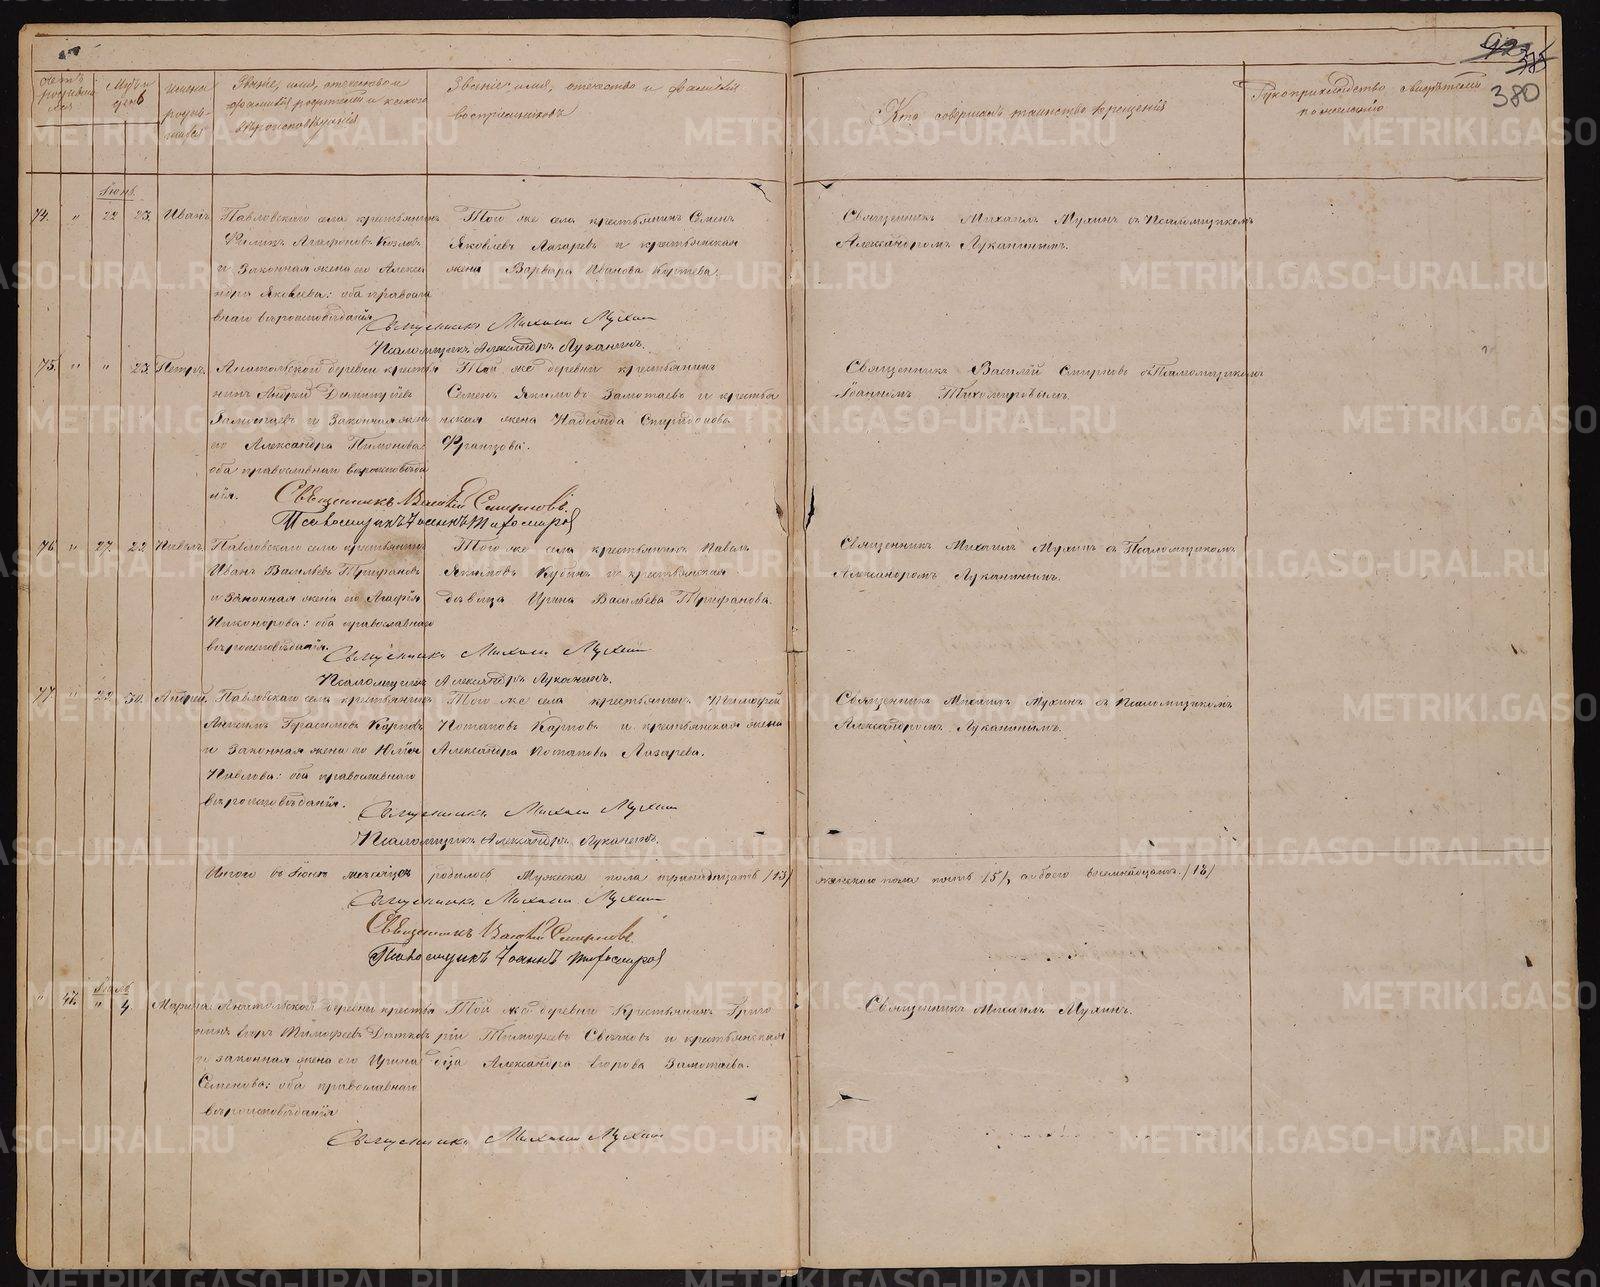 922
385
380
Счетъ родившихся
Мѣсяцъ и день
Имена родившихся
Званіе, имя, отчество и фамилія родителей и какого вѣроисповѣданія
Званіе, имя, отчество и фамилія воспріемниковъ
Кто совершалъ таинство крещенія
Рукоприкладство свидѣтелей по желанію
Іюнь
74. " 22 23. Иванъ
Павловскаго села крестьянинъ
Филипъ Агафоновъ Козловъ
и законная жена его Алекса
ндра Яковлева: оба правосла
внаго вѣроисповѣданія
Того же села крестьянинъ Семенъ
Яковлевъ Лазаревъ и крестьянская
жена Варвара Иванова
Священникъ Михаилъ Мухинъ съ Псаломщикомъ
Александромъ Луканинымъ.
Священникъ Михаилъ Мухин
Псаломщикъ Александръ Луканинъ.
75. " " 23. Петръ.
Анатольской деревни крестья
нинъ Андрей
и законная жена
его Александра
оба православнаго вѣроисповѣда
нія.
Той же деревни крестьянинъ
Семенъ Якимовъ Замотаевъ и крестья
нская жена Надежда Спиридонова
Францова.
Священникъ Василій Смирновъ съ Псаломщикомъ
Іоанномъ Тихомировымъ.
Священникъ Василій Смирновъ.
Псаломщикъ Іоаннъ Тихомиров
76. " 27. Павелъ.
Павловскаго села крестьянинъ
Иванъ Васильевъ Трифановъ
и законная жена его Агафія
Никонорова: оба православнаго
вѣроисповѣданія.
Того же села крестьянинъ Павелъ
Якимовъ Кубинъ и крестьянская
дѣвица Ирина Васильева Трифанова.
Священникъ Михаилъ Мухинъ съ Псаломщикомъ
Александромъ Луканинымъ.
Священникъ Михаилъ Мухин
Псаломщикъ Александръ Луканинъ.
77. " 30. Андрей.
Павловскаго села крестьянинъ
Анисимъ Герасимовъ Карповъ
и законная жена его Юлія
Павлова: оба православнаго
вѣроисповѣданія.
Того же села крестьянинъ Тимофей
Потаповъ Карповъ и крестьянская жена
Александра Потапова Лазарева.
Священникъ Михаилъ Мухинъ съ Псаломщикомъ
Александромъ Луканинымъ.
Священникъ Михаилъ Мухин
Псаломщикъ Александръ Луканинъ.
Итого въ Іюнѣ мѣсяцѣ родилось Мужеска пола тринадцать /13/
женскаго пола пять /5/, обоего восемнадцать. /18/
Священникъ Михаилъ Мухин
Священникъ Василій Смирновъ.
Псаломщикъ Іоаннъ Тихомиров
Іюль
" 47. " 4. Марина.
Анатольской деревни крестья
нинъ Егоръ Тимофеевъ
и законная жена его Ирина
Семенова: оба православнаго
вѣроисповѣданія
Той же деревни Крестьянинъ Григо
рій Тимофеевъ и крестьянская
Александра Егорова Замотаева.
Священникъ Михаилъ Мухинъ.
Священникъ Михаилъ Мухин
METRIKI.GASO-URAL.RU